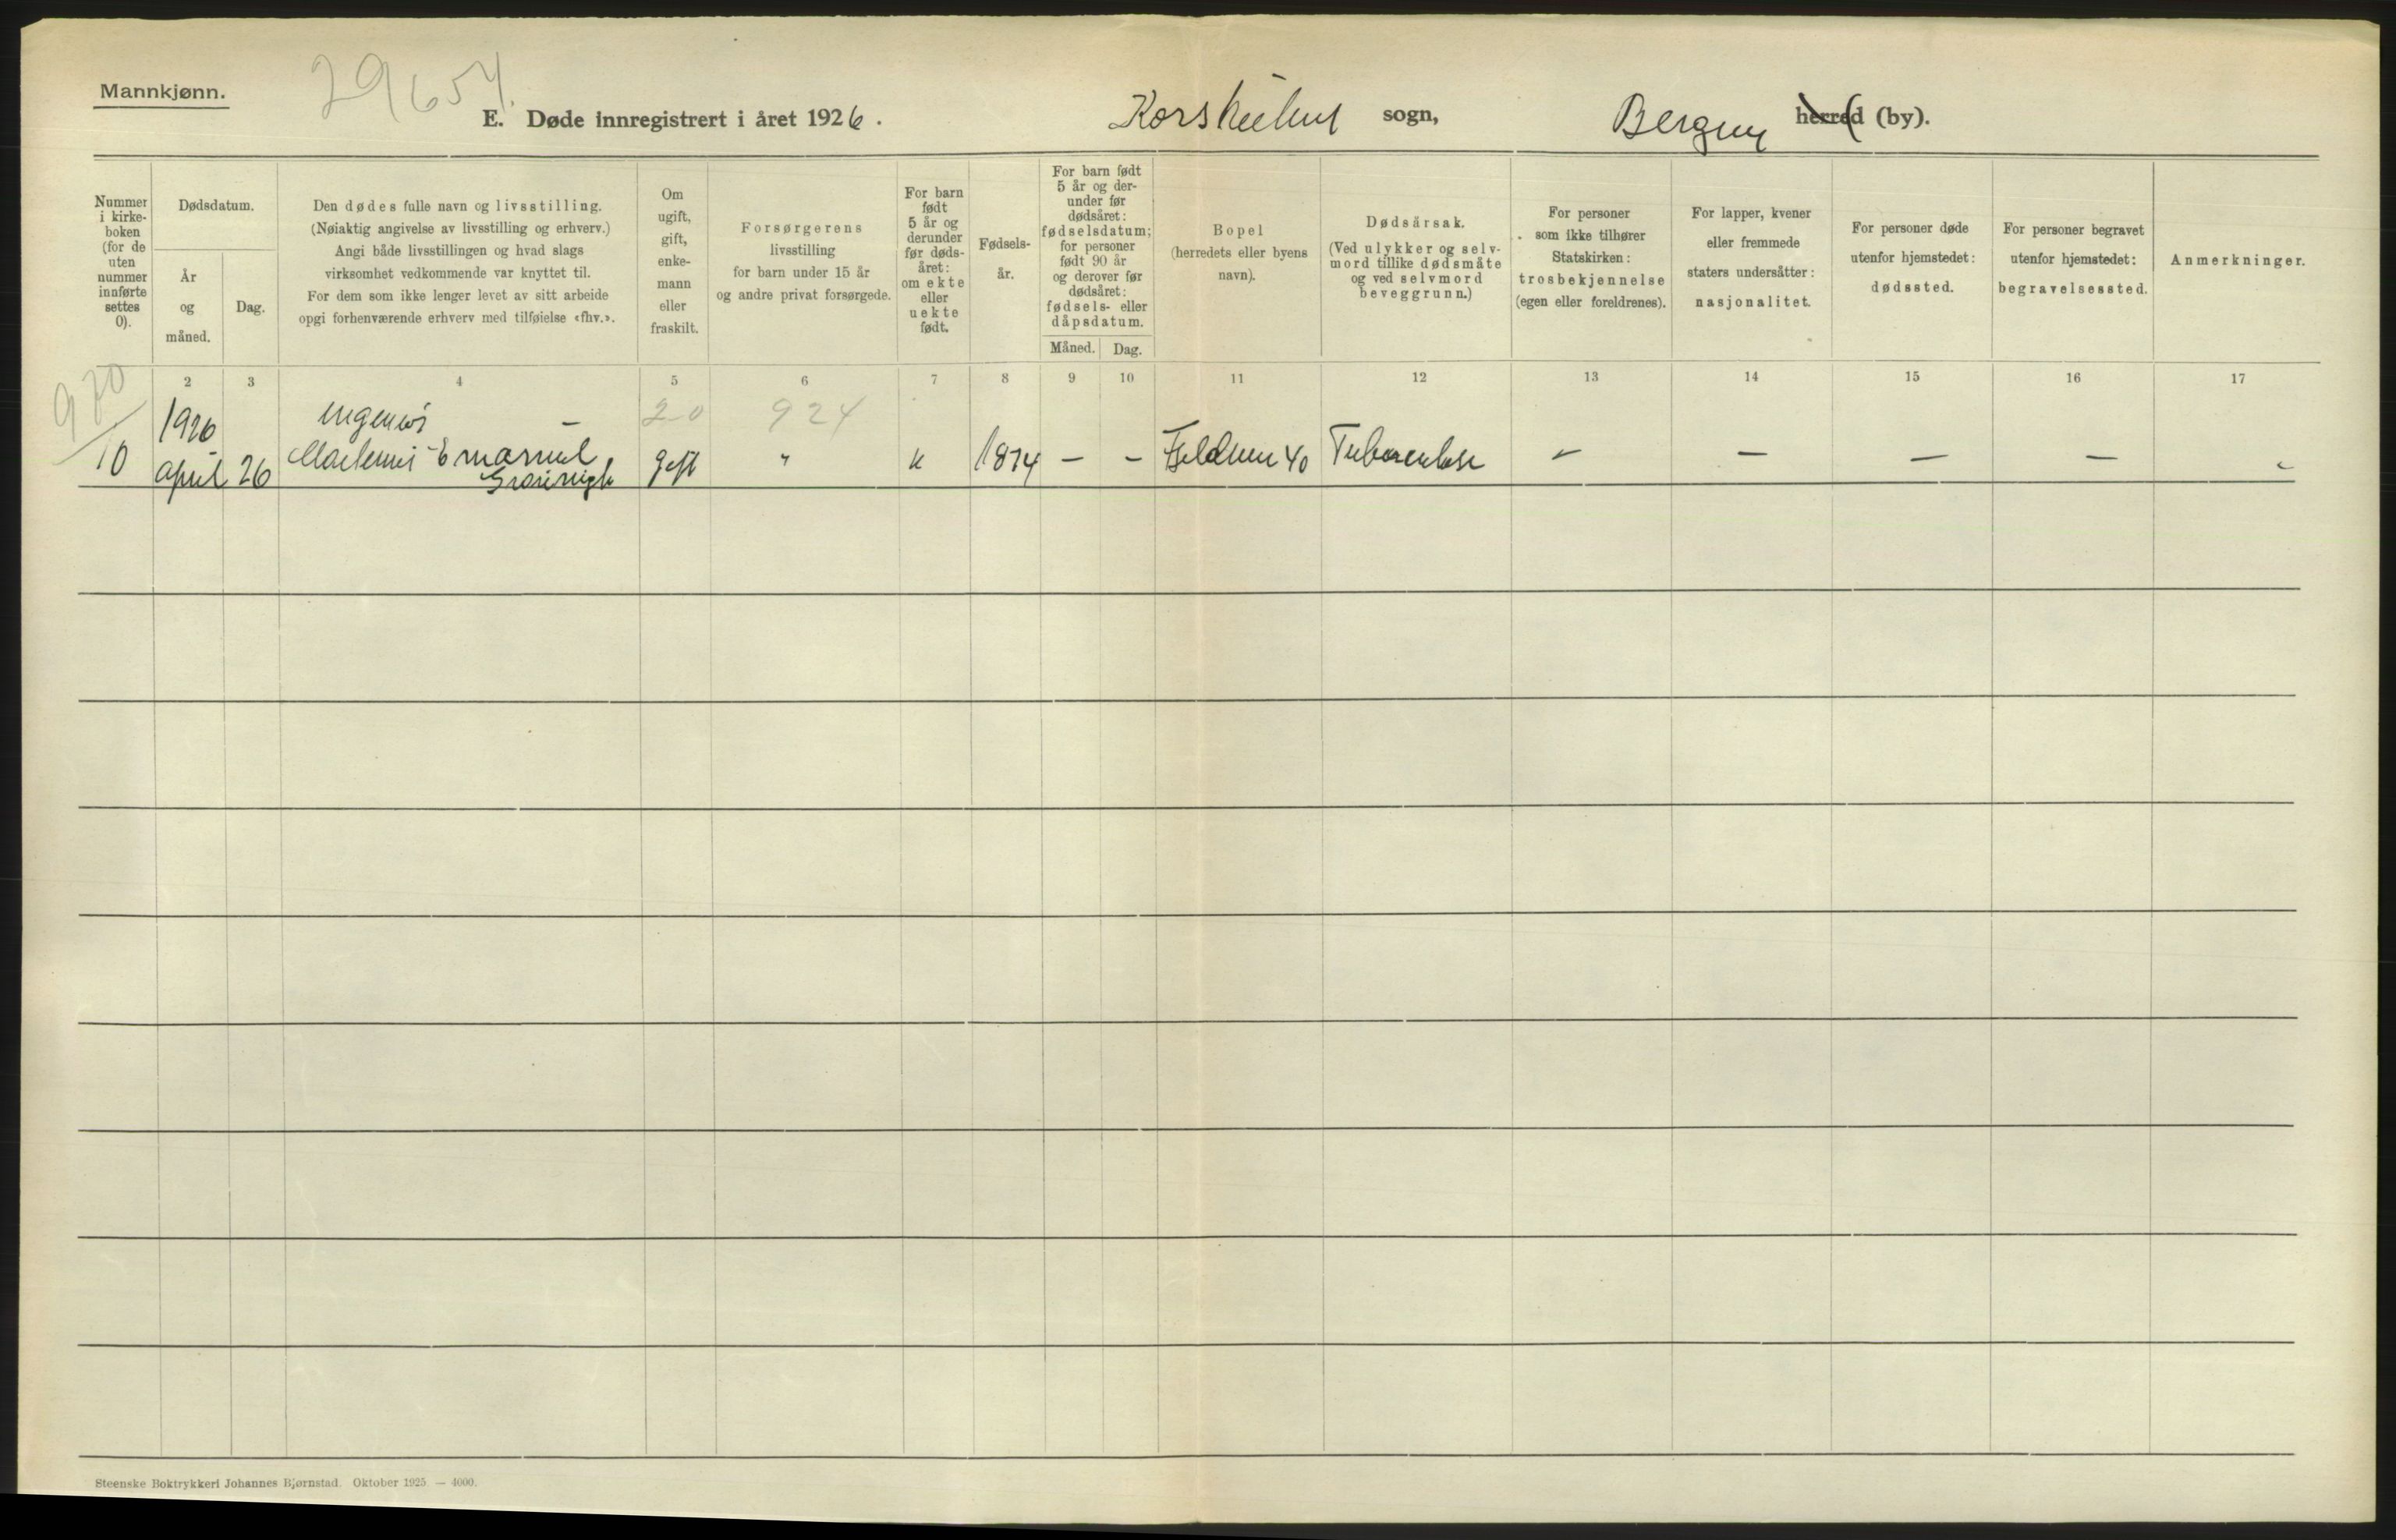 29654.
Mannkjønn.
E. Døde innregistrert i året 1926. sogn, Bergen herred (by).
Nummer i kirke- boken (for de uten nummer innførte settes 0).
Dødsdatum.
År og måned.
Dag.
Den dødes fulle navn og livsstilling.
(Nøiaktig angivelse av livsstilling og erhverv.)
Angi både livsstillingen og hvad slags
virksomhet vedkommende var knyttet til.
For dem som ikke lenger levet av sitt arbeide
opgi forhenværende erhverv med tilføielse «fhv.».
Om ugift, gift, enke- mann eller fraskilt.
Forsørgerens
livsstilling
for barn under 15 år
og andre privat forsørgede.
For barn født 5 år og derunder før døds- året: om ekte eller uekte født.
Fødsels- år.
For barn født 5 år og der- under før dødsåret: fødselsdatum; for personer født 90 år og derover før dødsåret: fødsels- eller dåpsdatum.
Måned. Dag.
Bopel
(herredets eller byens
navn).
Dødsårsak.
(Ved ulykker og selv-
mord tillike dødsmåte
og ved selvmord
beveggrunn.)
For personer
som ikke tilhører
Statskirken:
trosbekjennelse
(egen eller foreldrenes).
For lapper, kvener
eller fremmede
staters undersåtter:
nasjonalitet.
For personer døde
utenfor hjemstedet:
dødssted.
For personer begravet
utenfor hjemstedet:
begravelsessted.
Anmerkninger.
2 3 4 5 6 7 8 9 10 11 12 13 14 15 16 17
970
1926 Ingeniør – 20 924
10 April 26 Emanuel gift " 1874 – – 40 Tuberculose – – – – –
Steenske Boktrykkeri Johannes Bjørnstad. Oktober 1925 — 4000.